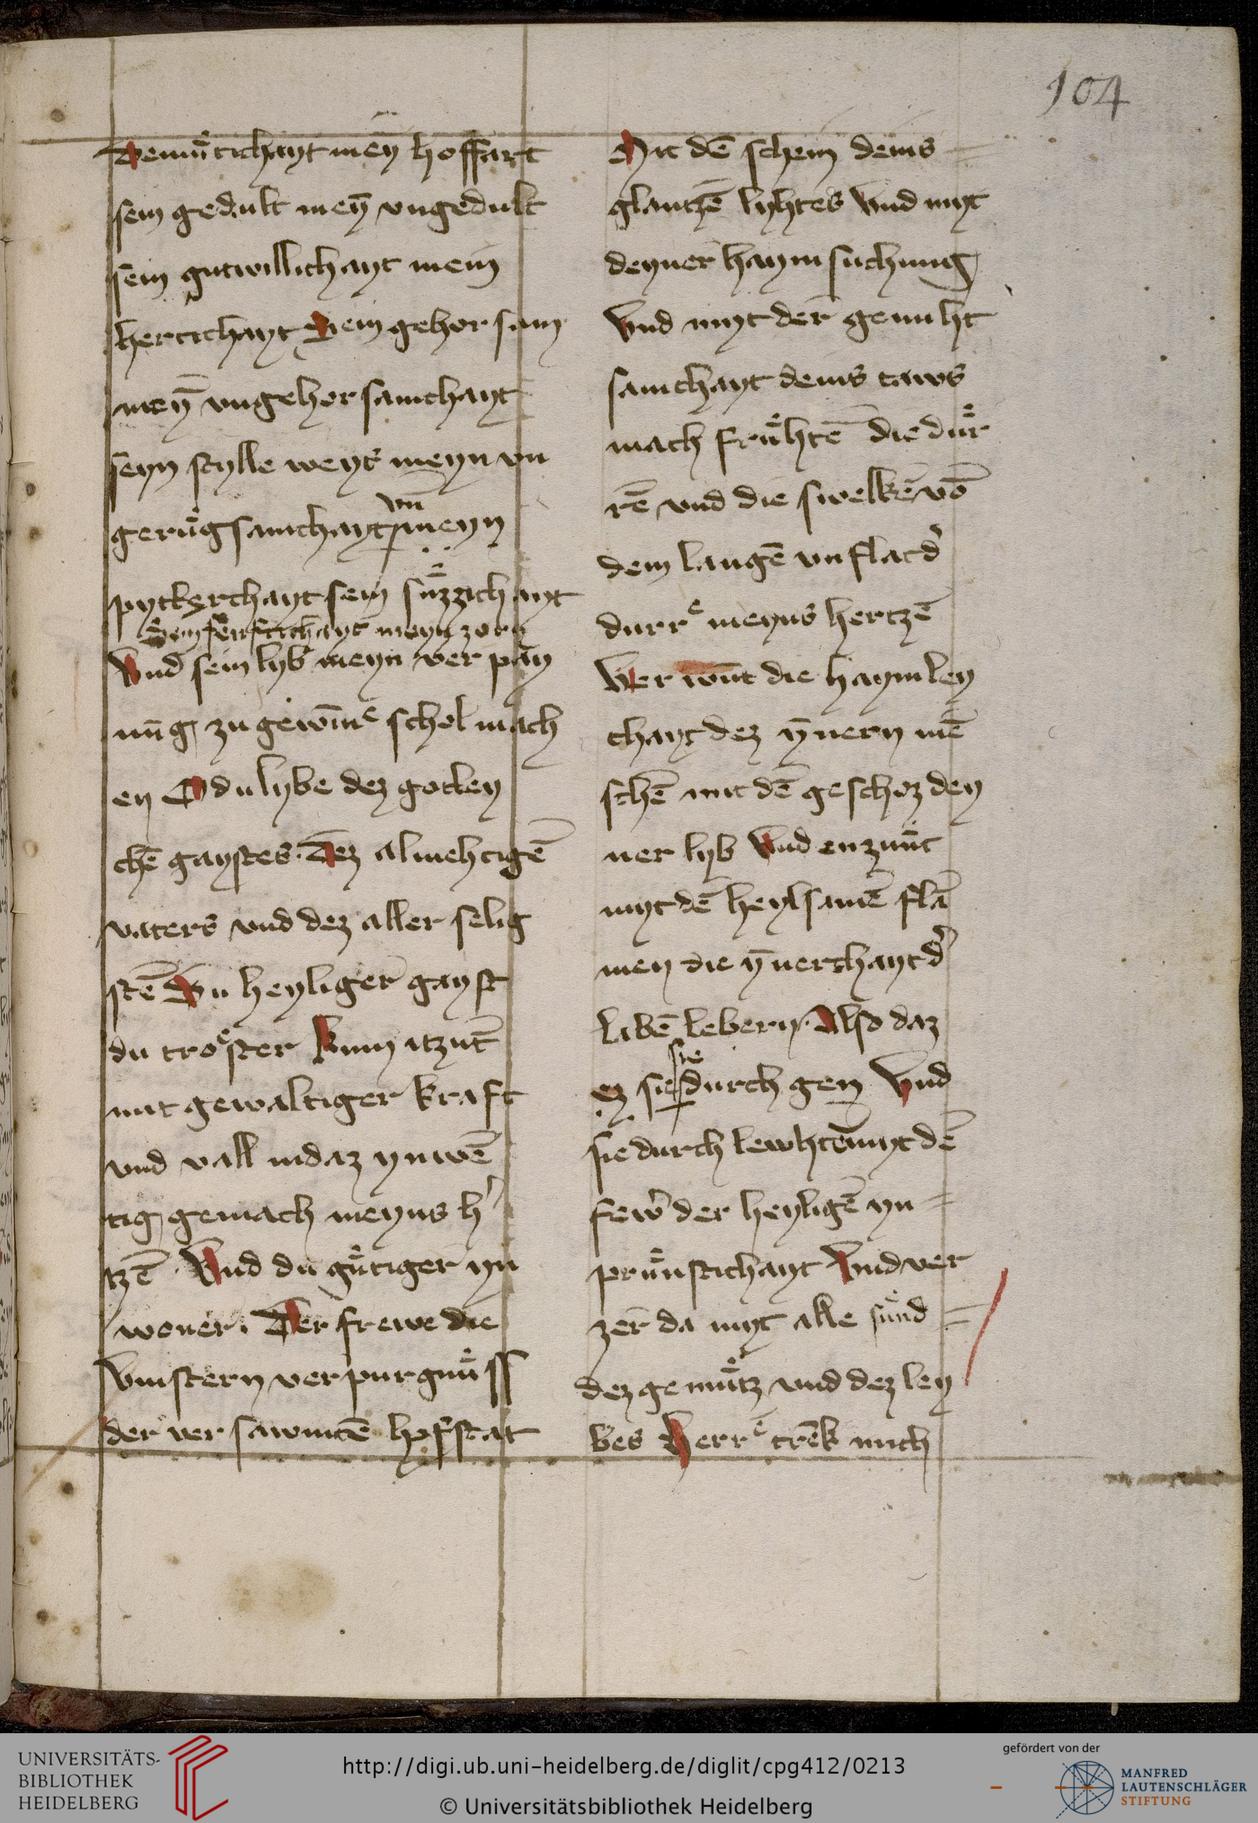 104
Demuͤtichayt mēy hoffart
sein gedult meȳ vngedult
sein gutwillichayt mein
hertichayt Sein gehorsam
meȳ vngehorsamchayt
seyn stylle weys meyn vn
geruͤgsamchayt vn̄ meyn
pytterchayt sein suͤzzichayt
Sein senftichayt meyn zorn
Vnd sein lyb meyn ver pan
nūg zu gewīneͤ schol mach
en O du lybe dez gotley
chē gaystes. Dez almehtigē
vaters vnd dez aller selig
stē Du heyliger gayst
du troͤster kum itzūt
mit gewaltiger kraft
vnd vall in daz ynwē
tig gemach meyns h'
tzē Vnd du guͤtiger yn
woner. Der frewe die
vinstern verpurgnuͤss
der versawmtē hofstat
Mit dē schein deins
glantzē lyhtes Vnd myt
deyner haymsuchung
Vnd myt der genuht
samchayt deins taws
mach fruͤhtē die duͤr
rē vnd die swelkē vō
dem langē vnflat d'
durreͤ meyns hertzē
Ver wūt die haymley
chayt dez ȳnern mē
schē mit dē geschoz dey
ner lyb Vnd enzuͤnt
myt dē heylsamē flā
men die ȳnerchayt d'
libē lebern. Also daz
ez sie sie durch gen Vnd
sie durch lewhtē myt dē
few' der heyligē yn
pruͤnstichayt Vnd ver
zer da myt alle suͤnd
dez gemuͤtz vnd dez ley
bes Herreͤ trēk mich
UNIVERSITÄTS-
BIBLIOTHEK
HEIDELBERG
http://digi.ub.uni-heidelberg.de/diglit/cpg412/0213
© Universitätsbibliothek Heidelberg
gefördert von der
MANFRED
LAUTENSCHLÄGER
STIFTUNG